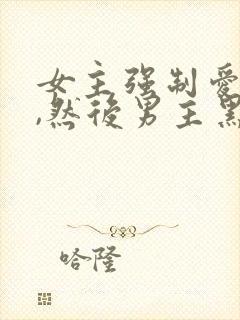 女主强制爱
,然后男主黑
哈隆